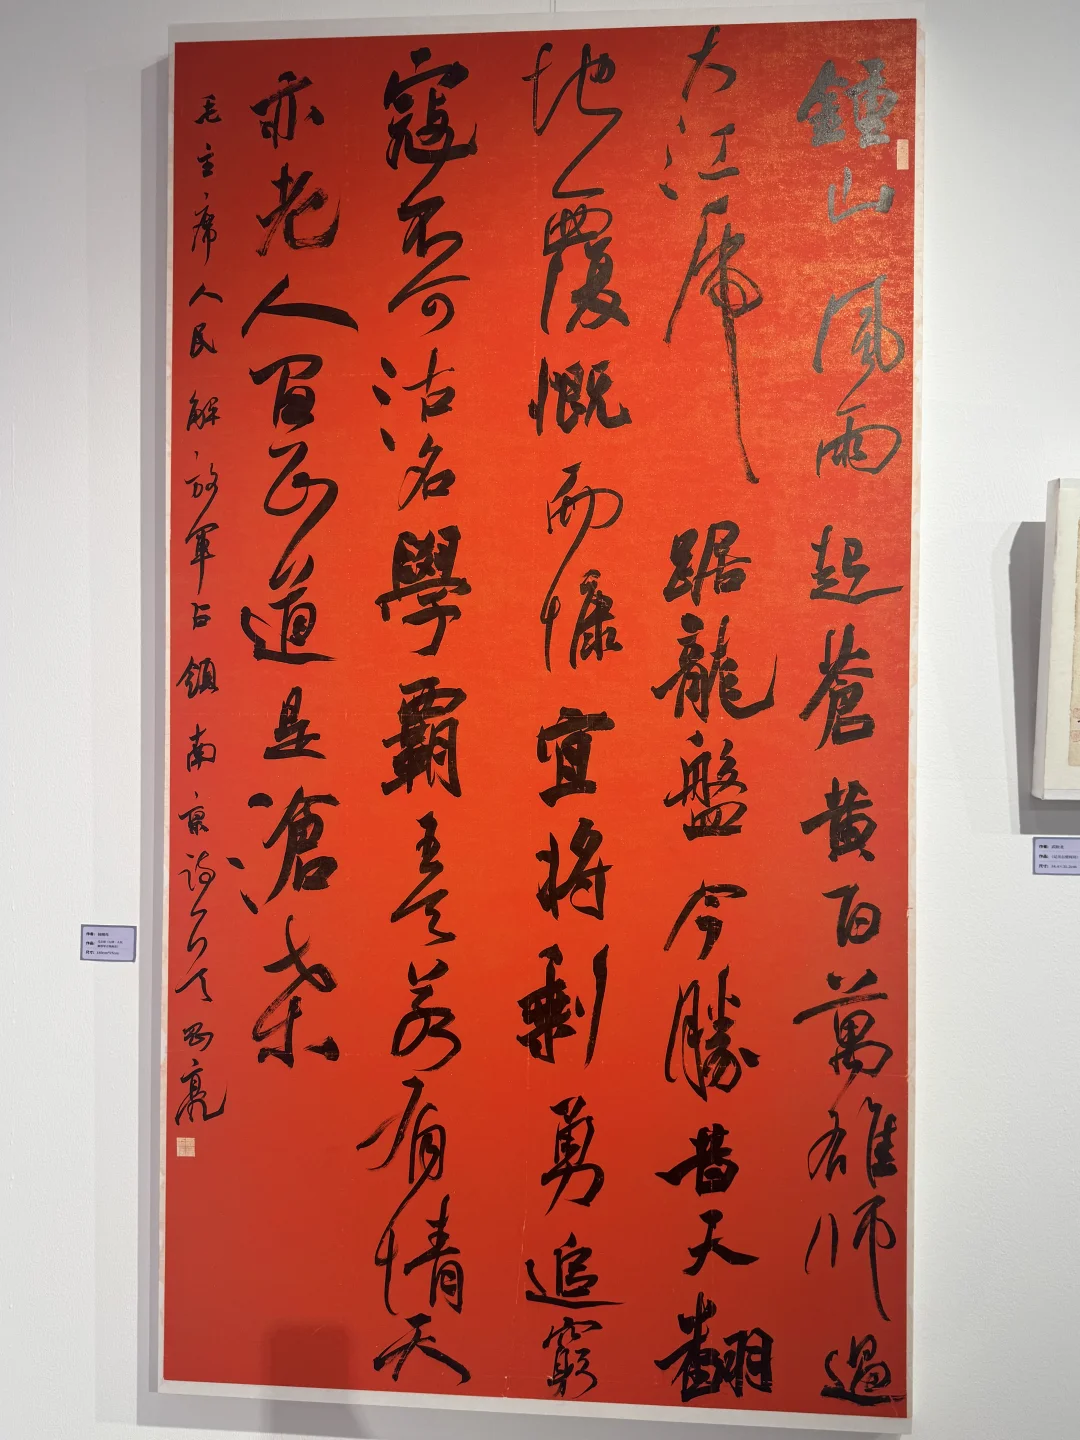 鍾山風雨起蒼黃百萬雄師過
大江虎踞龍盤今勝昔天翻
地覆慨而慷宜將剩勇追窮
寇不可沽名學霸王天若有情天
亦老人間正道是滄桑
毛主席人民解放軍占領南京詩
作者:
作品:
尺寸:
作者:
作品:
尺寸: